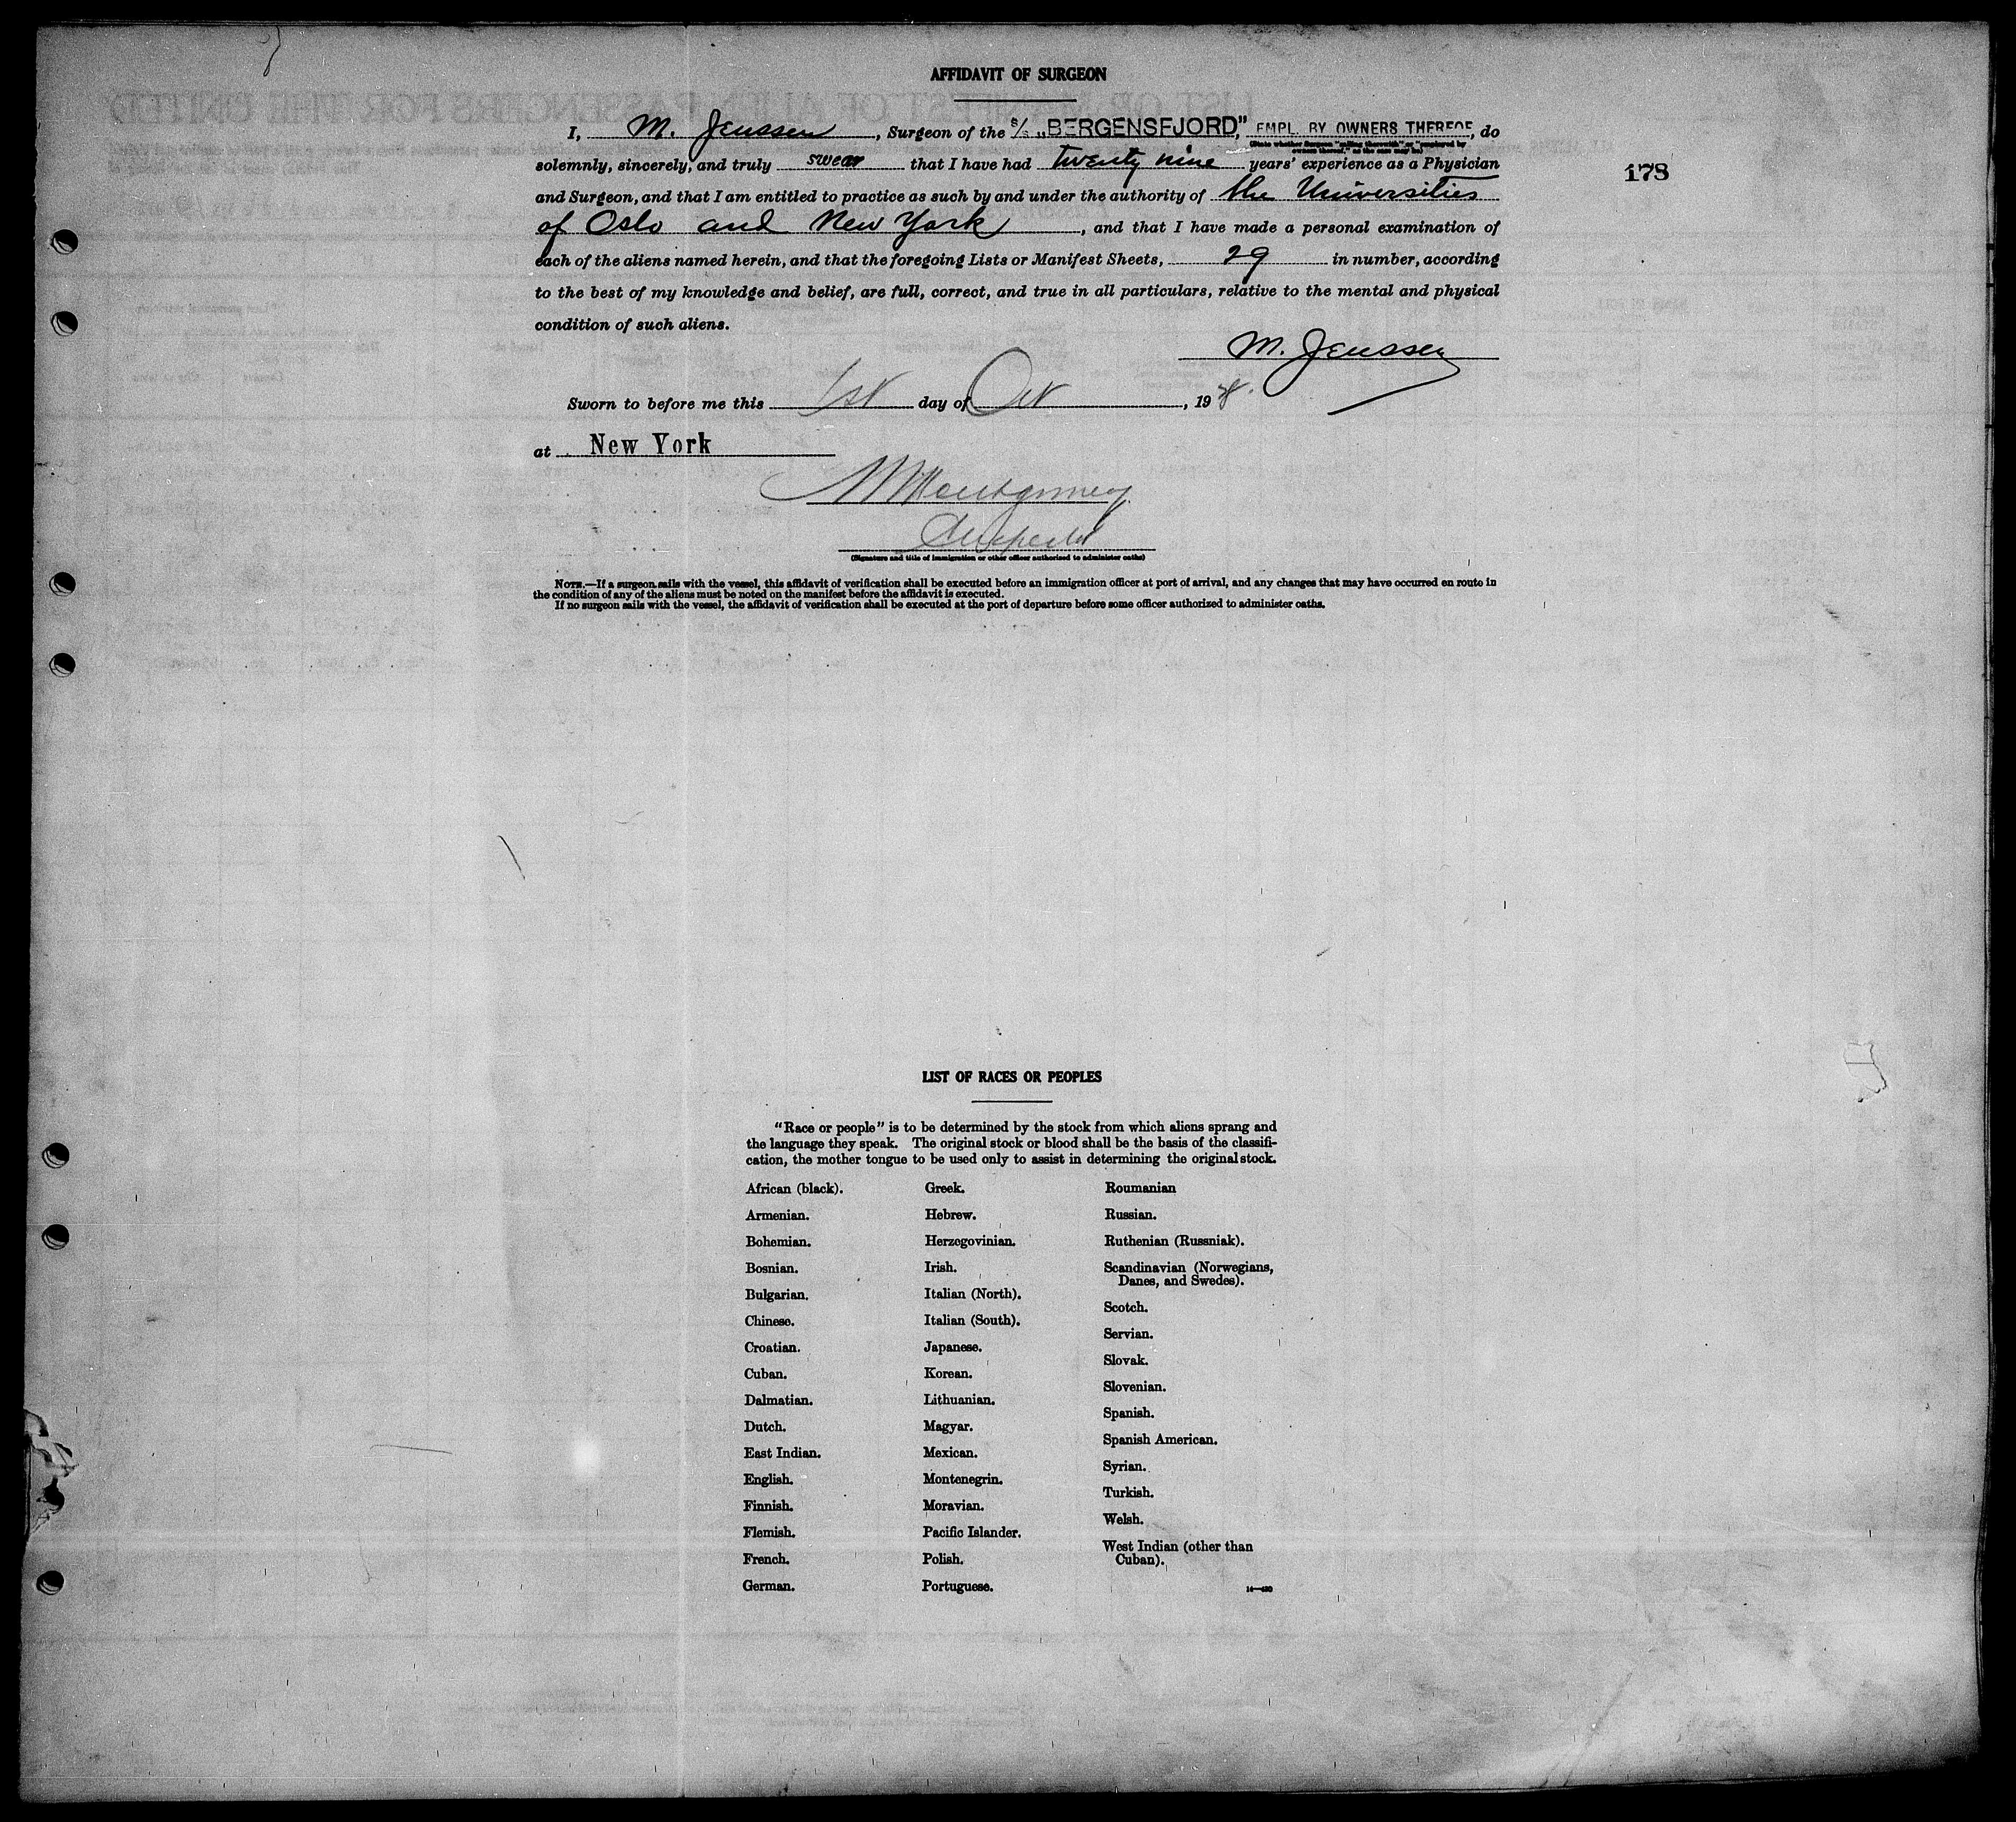 AFFIDAVIT OF SURGEON
I, M. Jenssen, Surgeon of the S/S „BERGENSFJORD," EMPL. BY OWNERS THEREOF, do
(State whether Surgeon "sailing therewith" or "employed by
owners thereof," as the case may be)
solemnly, sincerely, and truly swear that I have had twenty nine years' experience as a Physician
178
and Surgeon, and that I am entitled to practice as such by and under the authority of the Universities
of Oslo and New York, and that I have made a personal examination of
each of the aliens named herein, and that the foregoing Lists or Manifest Sheets, 29 in number, according
to the best of my knowledge and belief, are full, correct, and true in all particulars, relative to the mental and physical
condition of such aliens.
M. Jenssen
Sworn to before me this 1st day of Oct, 19
at New York
Montgomery
Inspector
(Signature and title of immigration or other officer authorized to administer oaths)
NOTE.—If a surgeon sails with the vessel, this affidavit of verification shall be executed before an immigration officer at port of arrival, and any changes that may have occurred en route in
the condition of any of the aliens must be noted on the manifest before the affidavit is executed.
If no surgeon sails with the vessel, the affidavit of verification shall be executed at the port of departure before some officer authorized to administer oaths.
LIST OF RACES OR PEOPLES
"Race or people" is to be determined by the stock from which aliens sprang and
the language they speak. The original stock or blood shall be the basis of the classifi-
cation, the mother tongue to be used only to assist in determining the original stock.
African (black).
Armenian.
Bohemian.
Bosnian.
Bulgarian.
Chinese.
Croatian.
Cuban.
Dalmatian.
Dutch.
East Indian.
English.
Finnish.
Flemish.
French.
German.
Greek.
Hebrew.
Herzegovinian.
Irish.
Italian (North).
Italian (South).
Japanese.
Korean.
Lithuanian.
Magyar.
Mexican.
Montenegrin.
Moravian.
Pacific Islander.
Polish.
Portuguese.
Roumanian
Russian.
Ruthenian (Russniak).
Scandinavian (Norwegians,
Danes, and Swedes).
Scotch.
Servian.
Slovak.
Slovenian.
Spanish.
Spanish American.
Syrian.
Turkish.
Welsh.
West Indian (other than
Cuban).